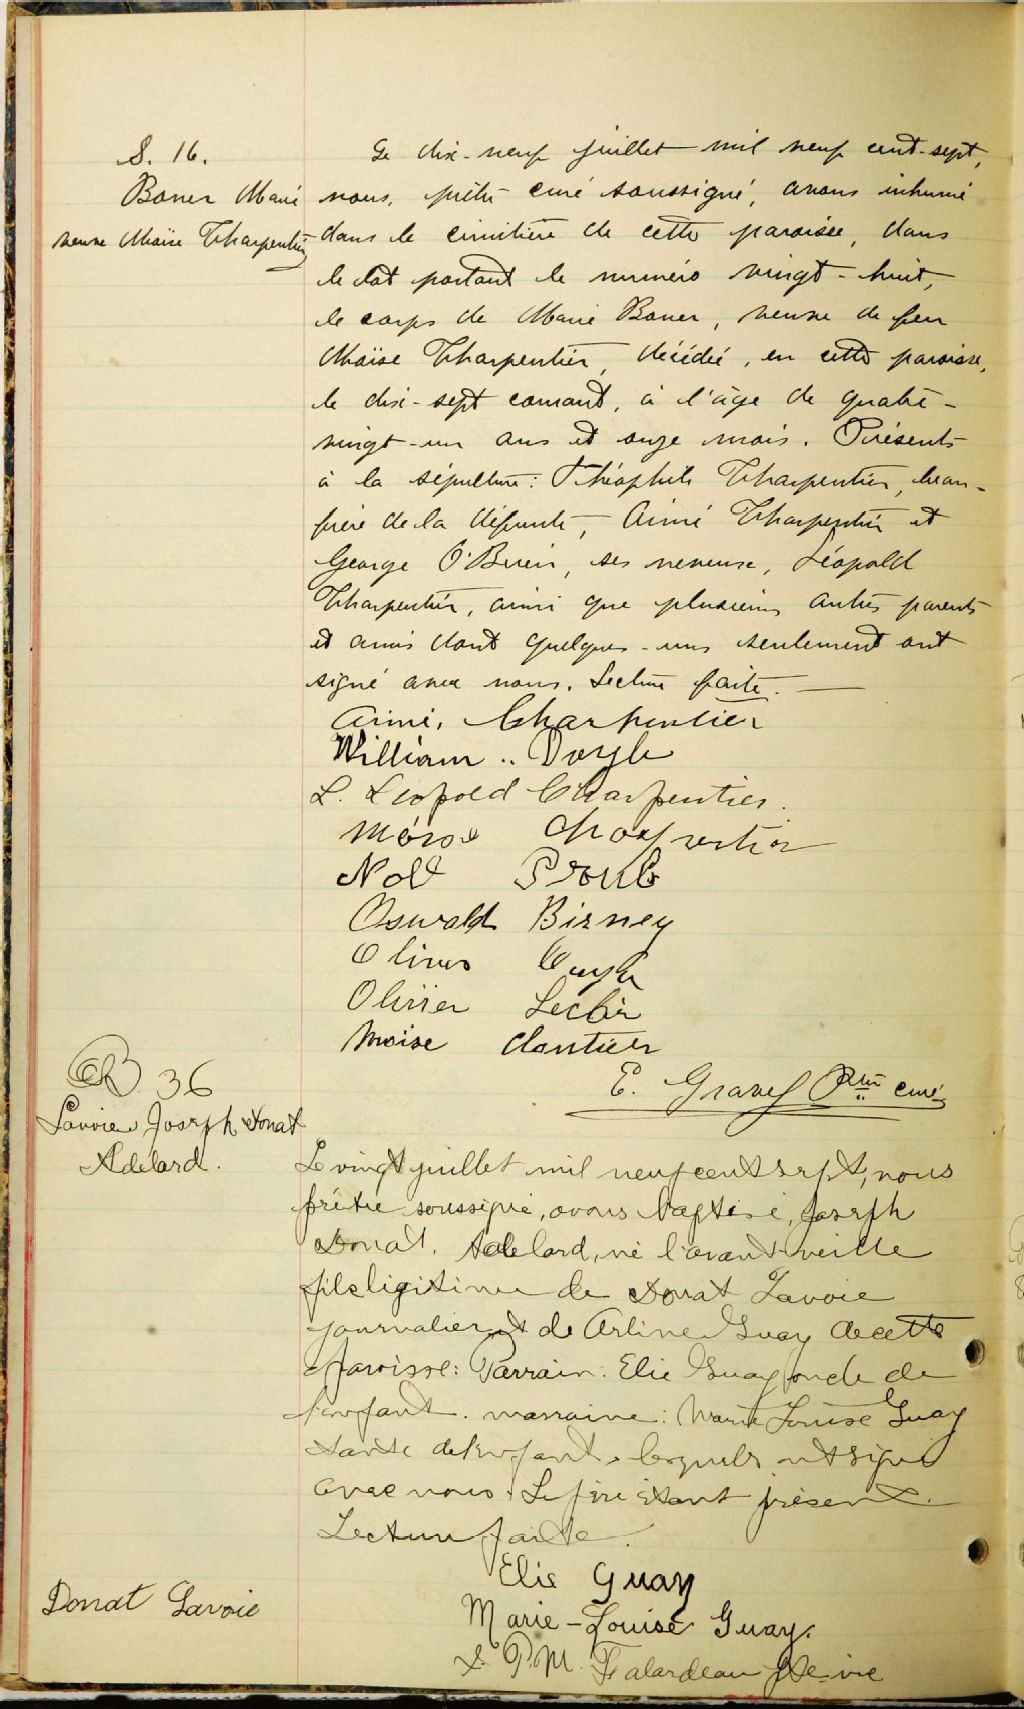 S. 16.
Boner Marie
veuve Moïse Charpentier
Le dix-neuf juillet mil neuf cent-sept,
nous, prêtre curé soussigné, avons inhumé
dans le cimitière de cette paroisse, dans
le lot portant le numéro vingt-huit,
le corps de Marie Boner, veuve de feu
Moïse Charpentier, décédée, en cette paroisse,
le dix-sept courant, à l'âge de quatre-
vingt-un ans et onze mois. Présents
à la sépulture: Théophile Charpentier, beau-
frère de la défunte, Aimé Charpentier et
George O'Brien, ses neveux, Léopold
Charpentier, ainsi que plusieurs autres parents
et amis dont quelques-uns seulement ont
signé avec nous. Lecture faite.
Aimé Charpentier
William Doyle
L. Leopold Charpentier.
Charpentier
Proulx
Oswald Birney
Oliver
Olivier Leclair
Moise Cloutier
E. Gravel Ptre curé
B. 36
Lavoie Joseph Donat
Adelard.
Le vingt juillet mil neuf cent sept, nous
prêtre soussigné, avons baptisé, Joseph
Donat. Adelard, né l'avant-veille
fils ligitime de Donat Lavoie
journalier et de Arline Guay de cette
paroisse: Parrain: Elie Guay oncle de
l'enfant. marraine: Marie Louise Guay
tante de l'enfant, lesquels ont signé
avec nous. Le père étant présent.
Lecture faite.
Elie Guay
Donat Lavoie
Marie-Louise Guay.
P.M. Falardeau Ptre vic